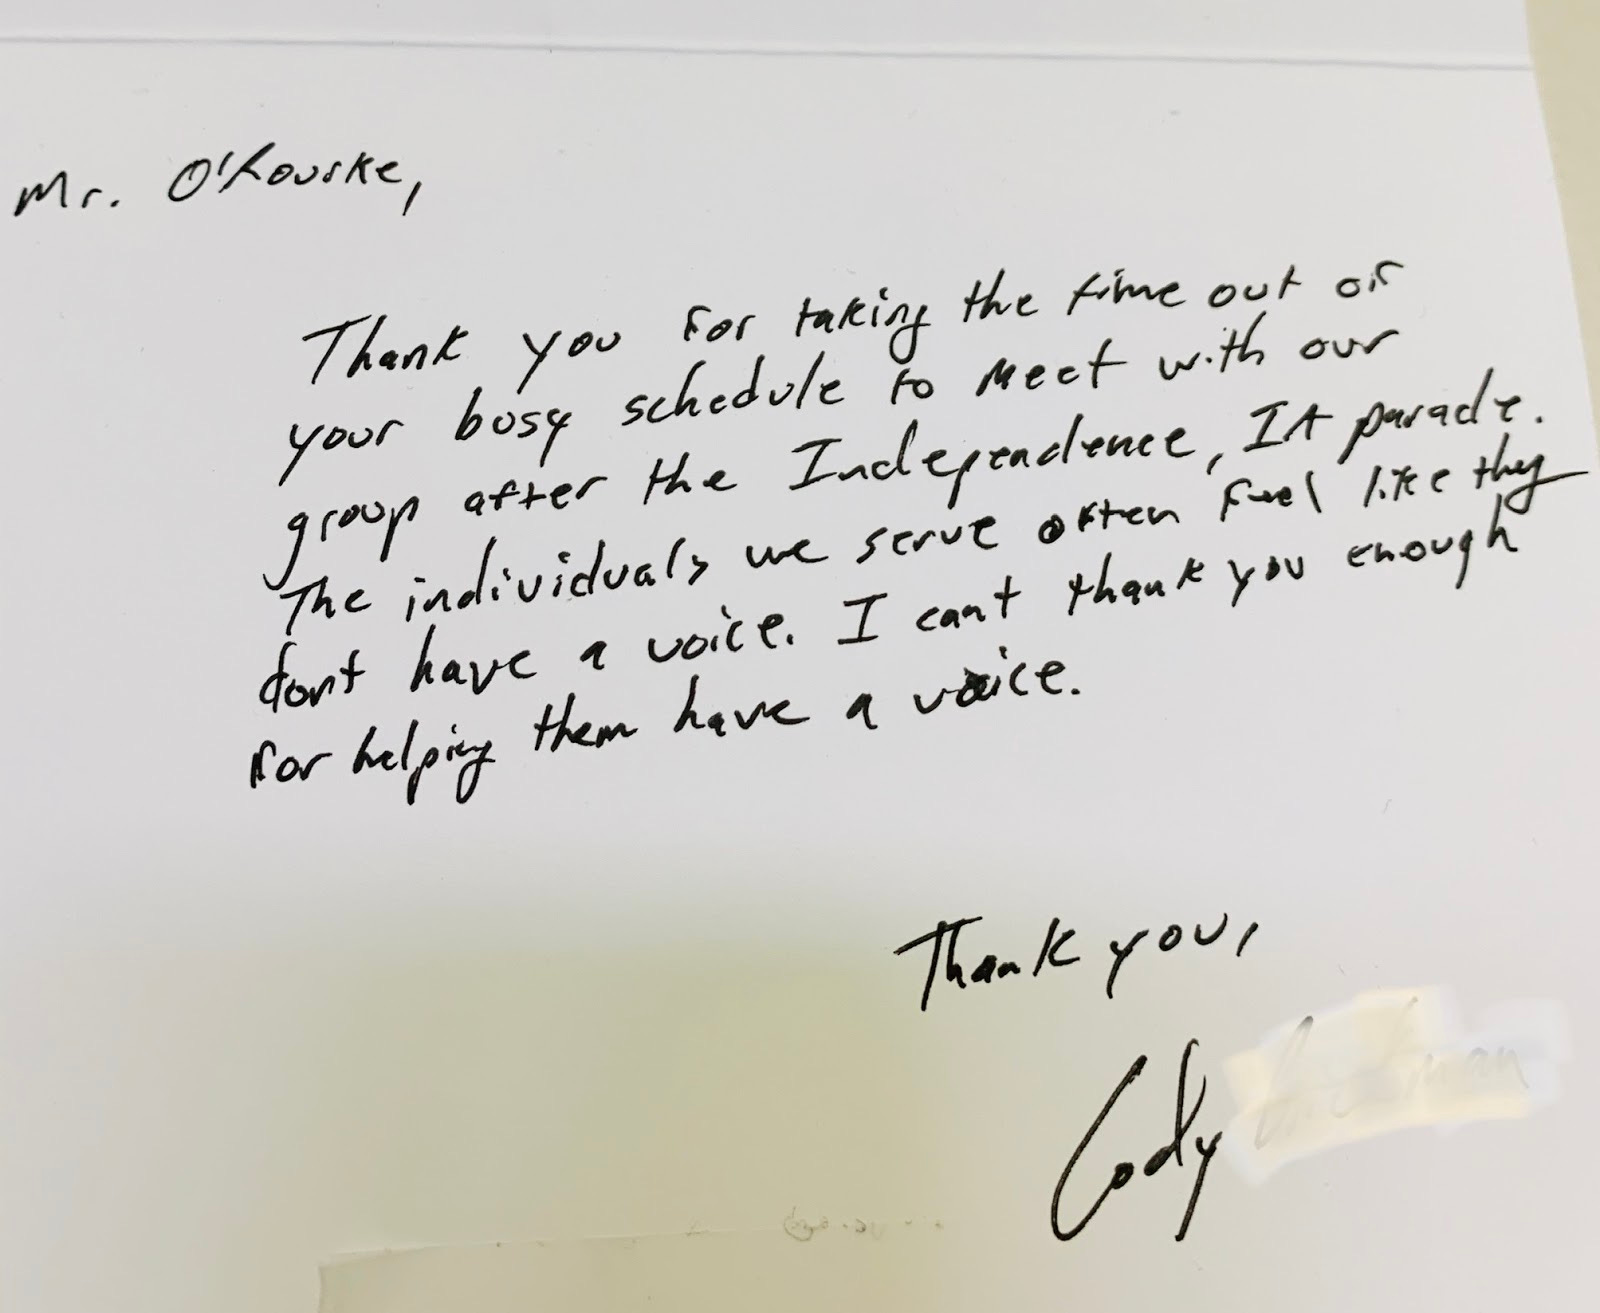 Mr. O'Rourke,
Thank you for taking the time out of
your busy schedule to meet with our
group after the Independence, IA parade.
The individuals we serve often feel like they
dont have a voice. I cant thank you enough
for helping them have a voice.
Thank you,
Cody